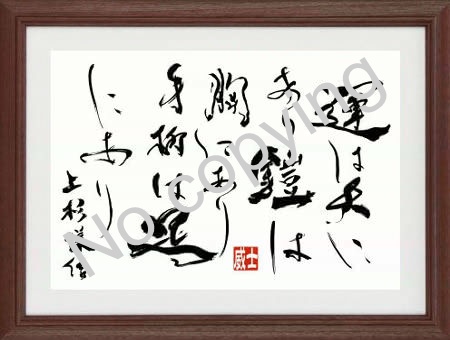 運は天に
あり鎧は
胸にあり
手柄は足
にあり
上杉謙信
士威
No copying